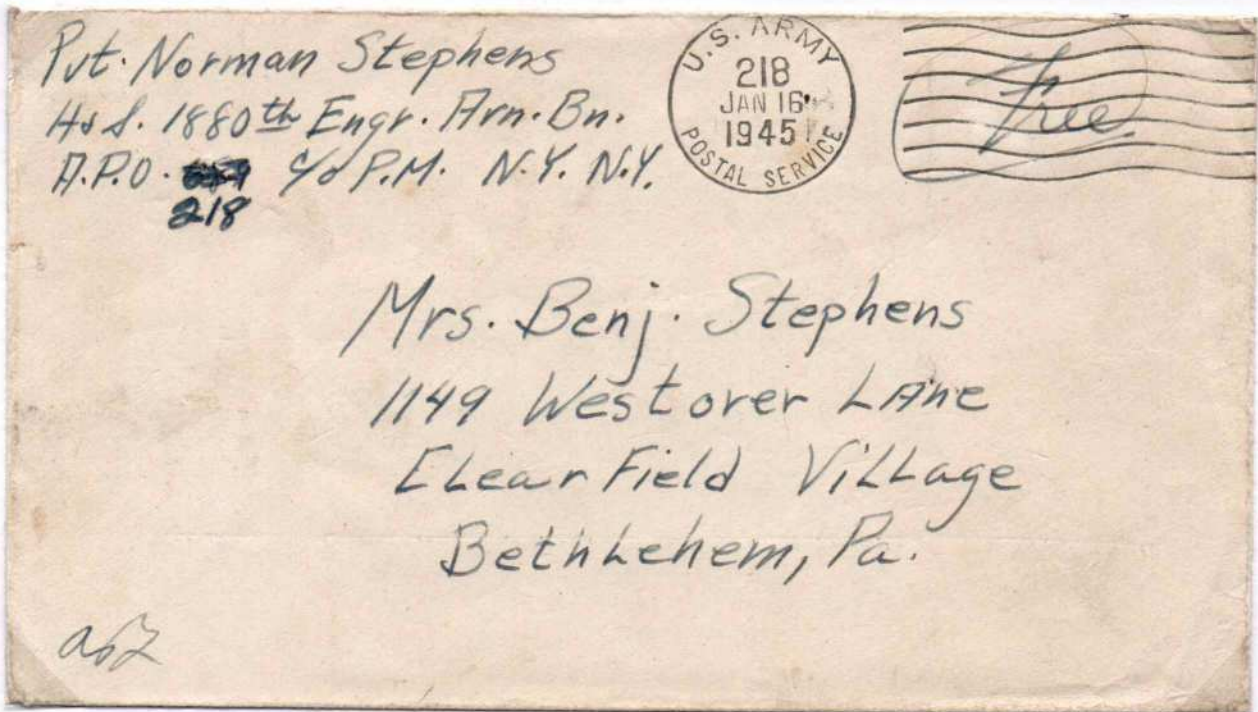 Pvt. Norman Stephens
H&S. 1880th Engr. Avn. Bn.
A.P.O. c/o P.M. N.Y. N.Y.
218
U.S. ARMY
218
JAN 16
1945
POSTAL SERVICE
Free
Mrs. Benj. Stephens
1149 Westover LAne
CLearField ViLLage
BethLehem, Pa.